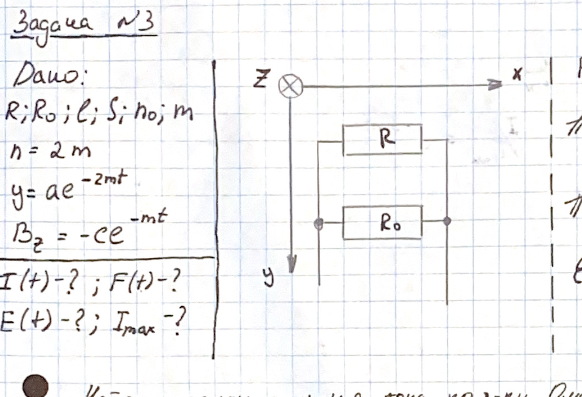 Задача №3
Дано:
R; R₀; l; S; n₀; m
n = 2m
y = ae^{-2mt}
B_z = -ce^{-mt}
I(t)-? ; F(t)-?
E(t)-? ; I_max-?
Z
x
R
R₀
y